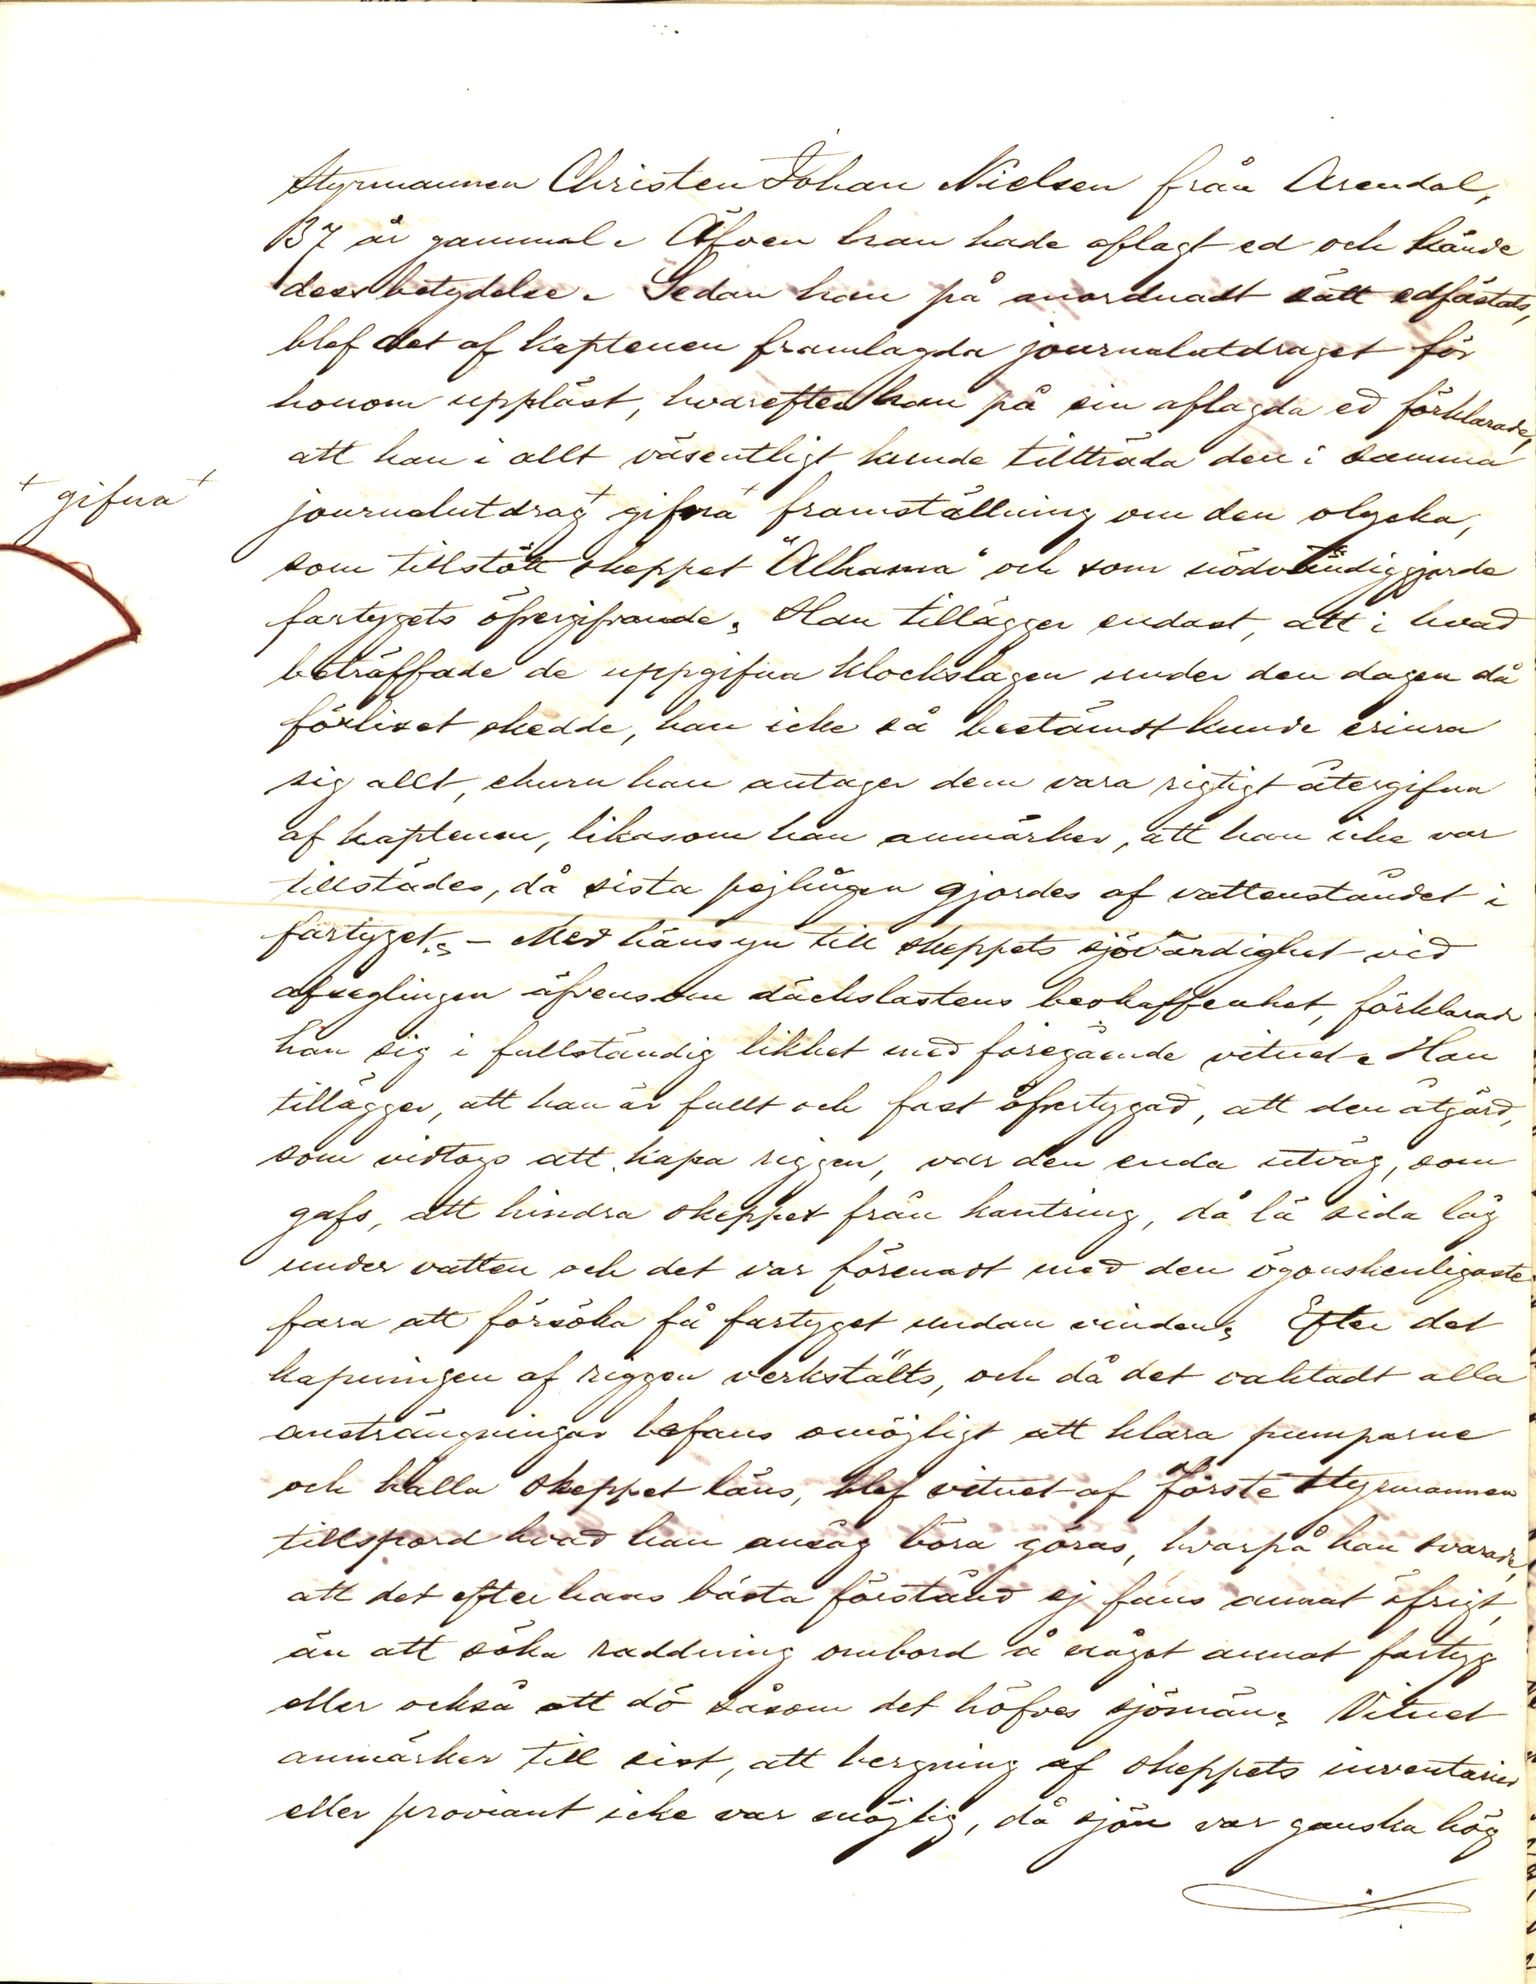 Styrmannen Christen Johan Nielsen från Arendal,
37 år gammal. Äfven han hade aflagt ed och kände
dess betydelse. Sedan han på anordnadt sätt edfästats,
blef det af kaptenen framlagda journalutdraget för
honom uppläst, hvarefter han på sin aflagda ed förklarade,
att han i allt väsentligt kunde tillträda den i samma
+ gifna +
journalutdrag + gifna + framställning om den olycka,
som tillstött skeppet "Alhama" och som nödvändiggjorde
fartygets öfvergifvande. Han tillägger endast, att i hvad
beträffade de uppgifna klockslagen under den dagen då
förliset skedde, han icke så bestämdt kunde erinra
sig allt, ehuru han antager dem vara rigtigt återgifna
af kaptenen, likasom han anmärker, att han icke var
tillstädes, då sista pejlingen gjordes af vattenståndet i
fartyget. – Med hänsyn till skeppets sjövärdighet vid
afseglingen äfvensom däckslastens beskaffenhet, förklarade
han sig i fullständig likhet med föregående vitnet. Han
tillägger, att han är fullt och fast öfvertygad, att den åtgärd,
som vidtogs att kapa riggen, var den enda utväg, som
gafs, att hindra skeppet från kantring, då lä sida låg
under vatten och det var förenadt med den ögonskenligaste
fara att försöka få fartyget undan vinden. Efter det
kapningen af riggen verkstälts, och då det oaktadt alla
ansträngningar befans omöjligt att klara pumparne
och hålla skeppet läns, blef vitnet af förste styrmannen
tillspord hvad han ansåg böra göras, hvarpå han svarade,
att det efter hans bästa förstånd ej fans annat öfrigt,
än att söka räddning ombord å något annat fartyg
eller också att dö såsom det höfves sjömän. Vitnet
anmärker till sist, att bergning af skeppets inventarier
eller proviant icke var möjlig, då sjön var ganska hög